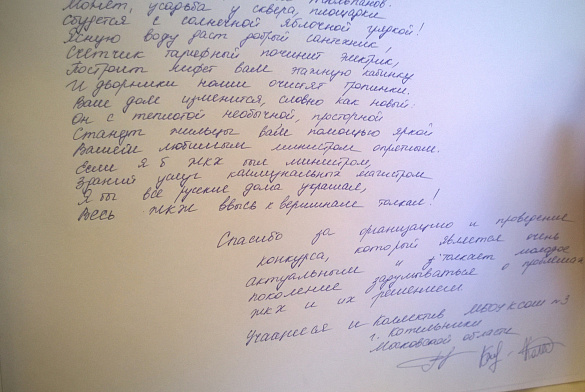 Может, усадьба у сквера, площадки
Сбудется с солнечной яблочной грядкой!
Ясную воду даст добрый сантехник,
Счётчик тарифный починит электрик,
Построит лифт вам важную кабинку
И дворники наши очистят тропинки.
Ваш дом изменится, словно как новый:
Он с теплотой необычной, просторной
Станут жильцы вам помощью яркой
Вашем любимым министром опрятным.
Если я б ЖКХ был министром,
Зданий услуг коммунальных магистром
Я бы все русские дома украшал,
Весь ЖКХ ввысь к вершинам толкал!
Спасибо за организацию и проведение
конкурса, который является очень
актуальным и толкает молодое
поколение задумываться о проблемах
ЖКХ и их решением
Учащиеся и Коллектив МБОУ КСОШ №3
г. Котельники
Московской области